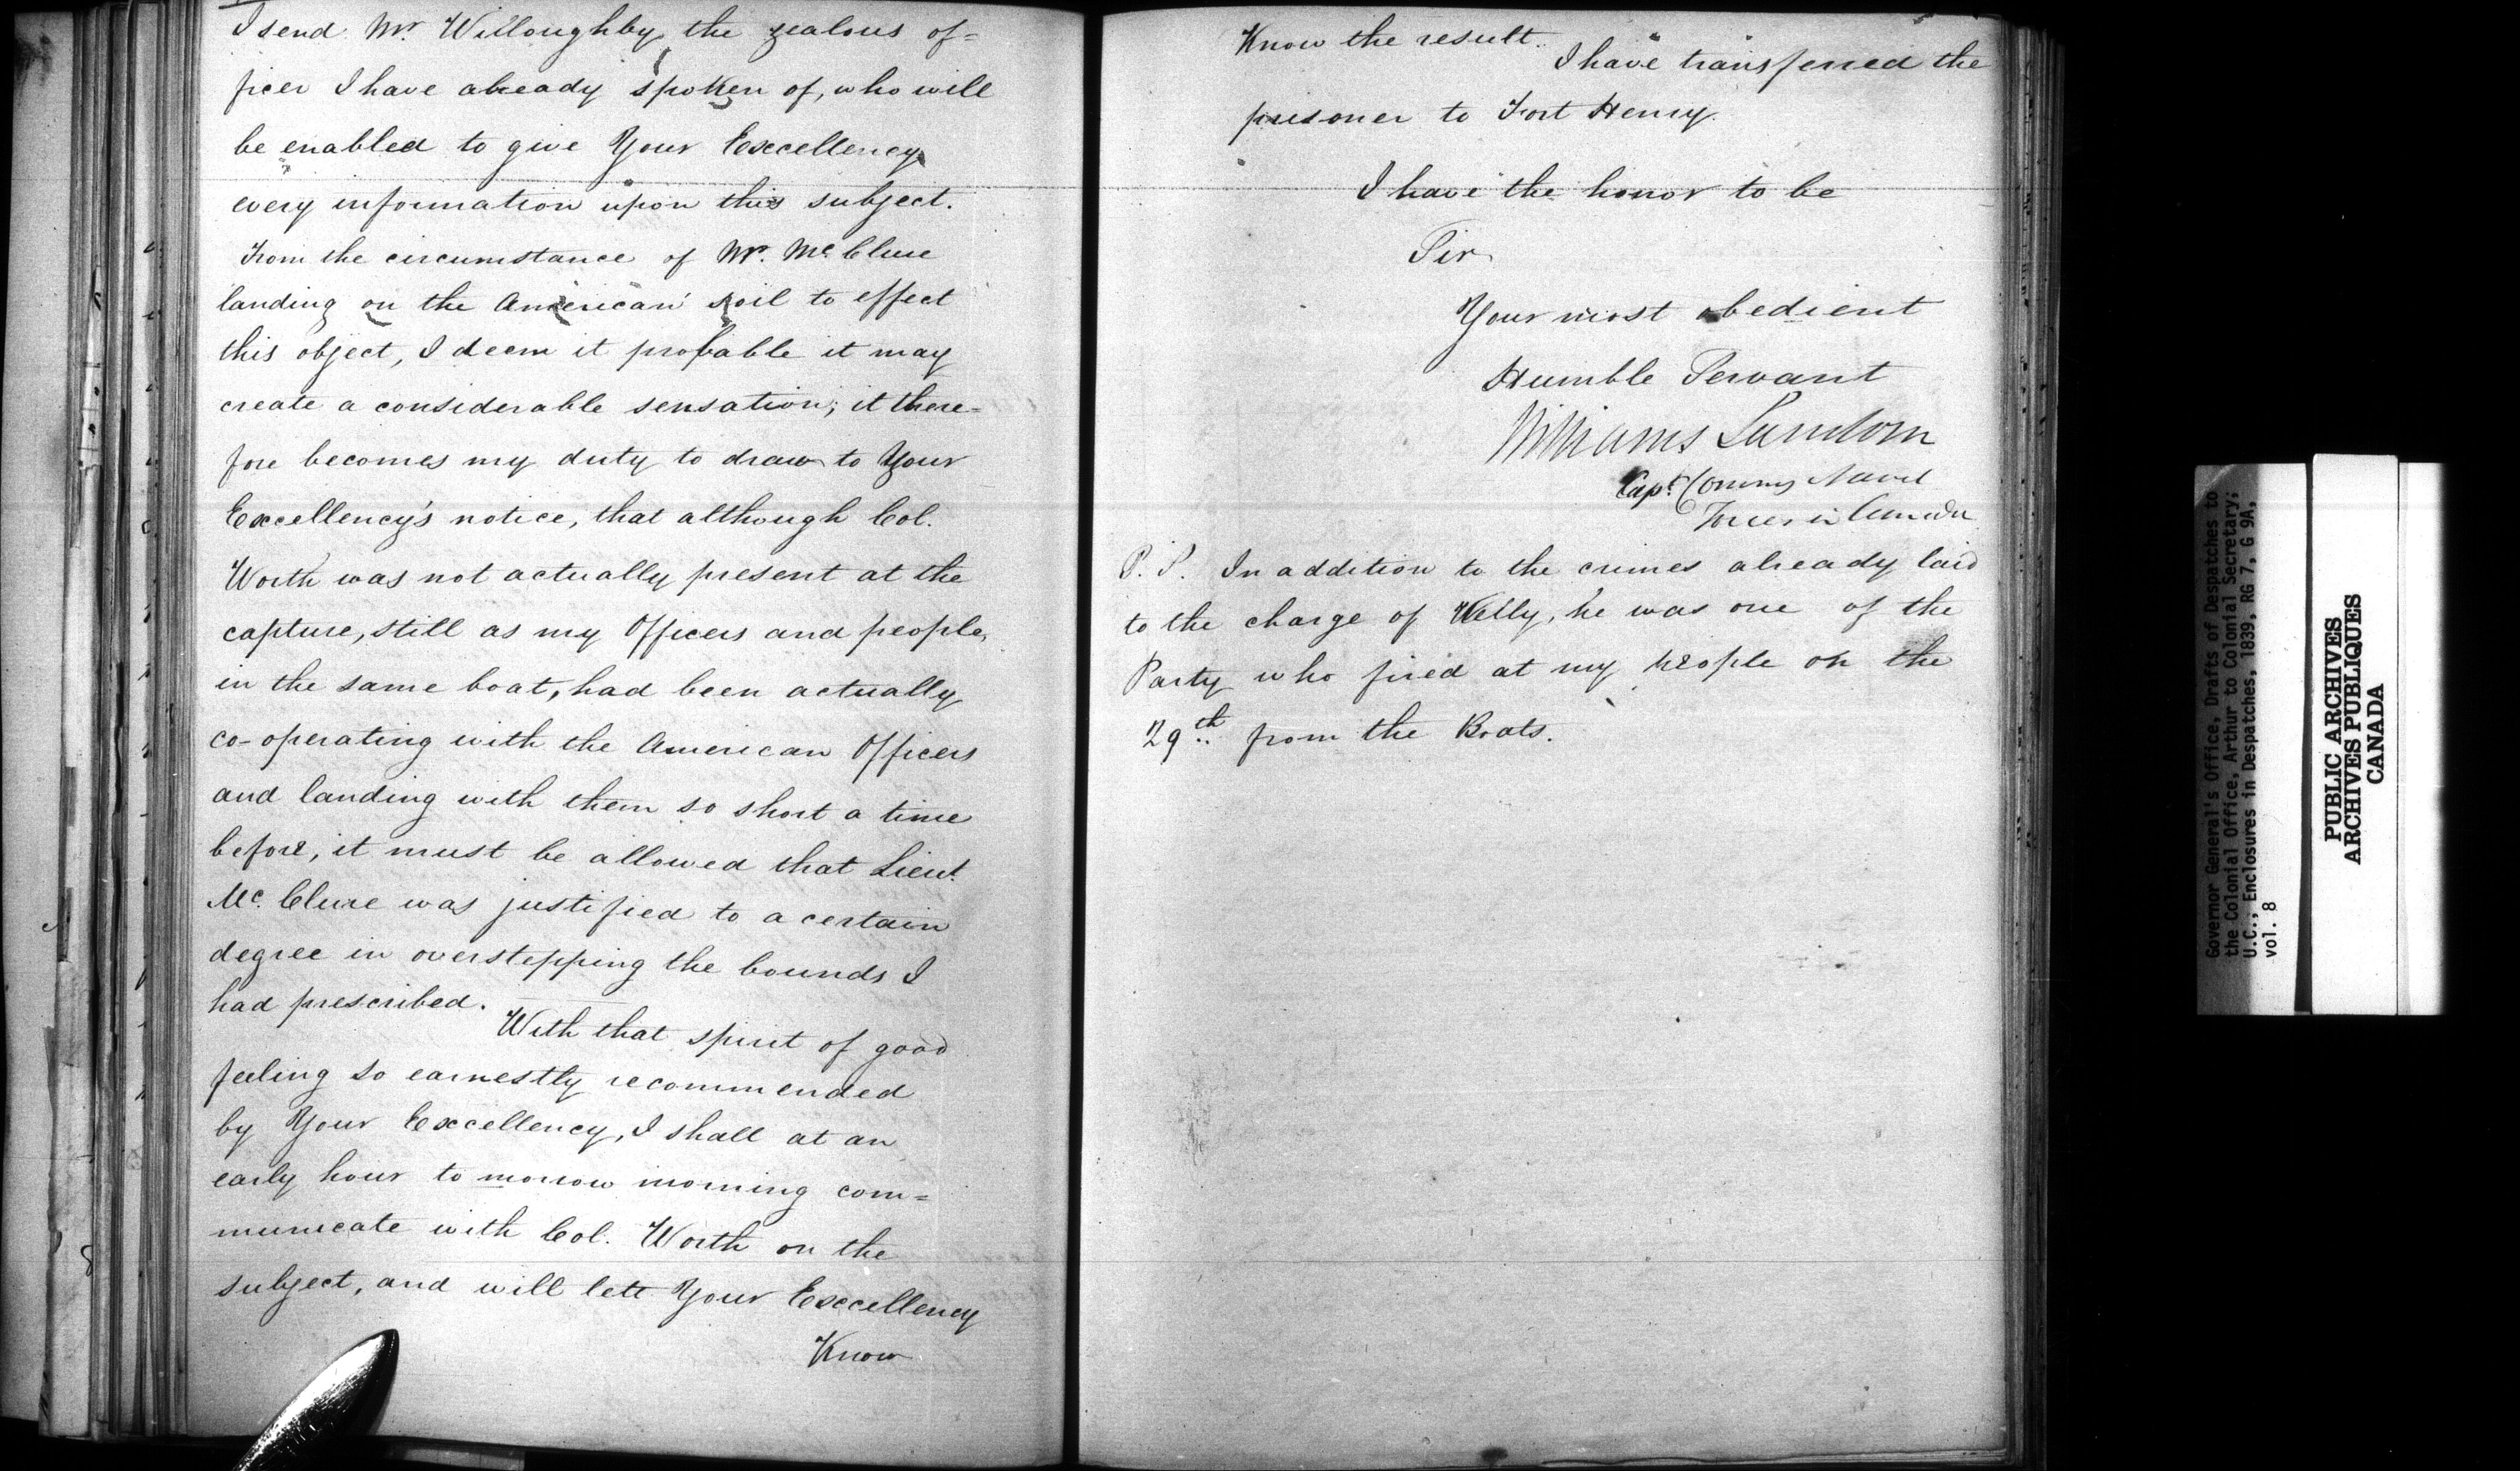 I send Mr. Willoughby, the zealous of=
ficer I have already spoken of, who will
be enabled to give Your Excellency
every information upon this subject.
From the circumstance of Mr. McClure
landing on the American soil to effect
this object, I deem it probable it may
create a considerable sensation; it there=
fore becomes my duty to draw to Your
Excellency's notice, that although Col.
Worth was not actually present at the
capture, still as my Officers and people,
in the same boat, had been actually
co-operating with the American Officers
and landing with them so short a time
before, it must be allowed that Lieut.
McClure was justified to a certain
degree in overstepping the bounds I
had prescribed.
With that spirit of good
feeling so earnestly recommended
by Your Excellency, I shall at an
early hour to morrow morning com=
municate with Col. Worth on the
subject, and will lett Your Excellency
Know
Know the result.
I have transferred the
prisoner to Fort Henry.
I have the honor to be
Sir
Your most obedient
Humble Servant
Williams Sandom
Capt. Comg Naval
Forces in Canada
P.S. In addition to the crimes already laid
to the charge of Kelly, he was one of the
Party who fired at my people on the
29th from the Boats.
Governor General's Office, Drafts of Despatches to
the Colonial Office, Arthur to Colonial Secretary;
U.C.; Enclosures in Despatches, 1839, RG 7, G 9A,
vol. 8
PUBLIC ARCHIVES
ARCHIVES PUBLIQUES
CANADA